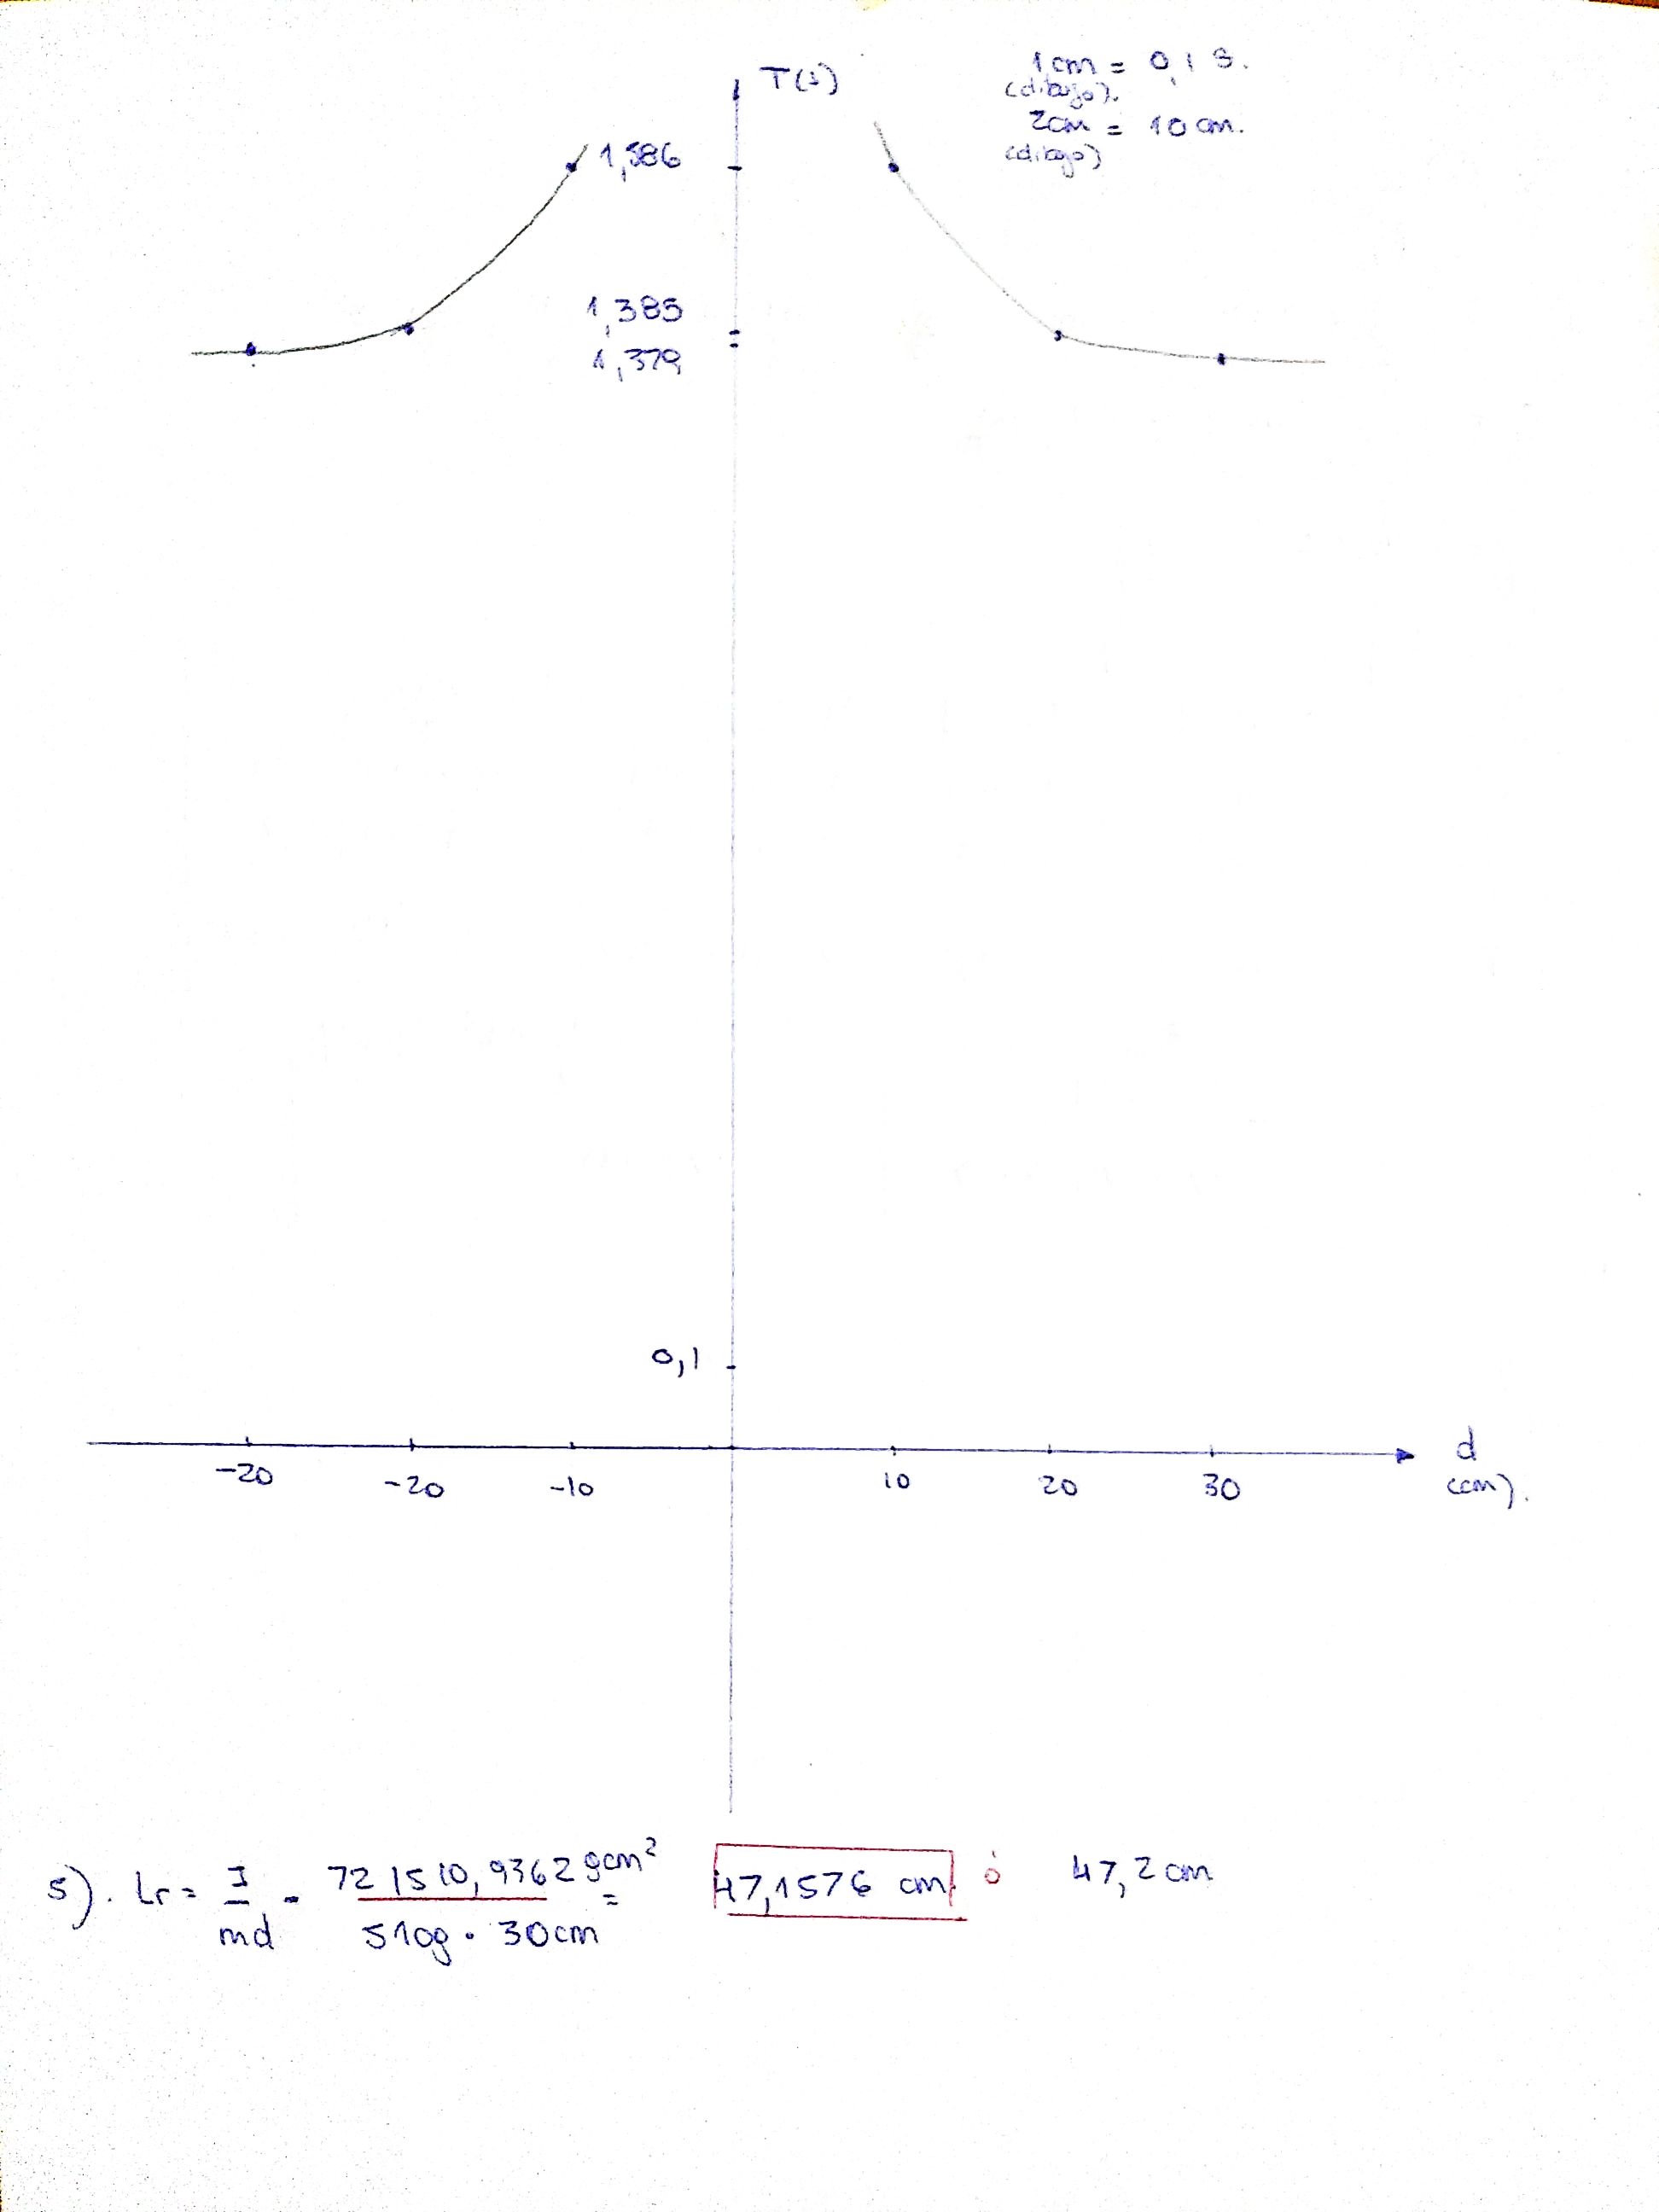 T(s)
1cm = 0,1 s.
(dibujo).
2cm = 10 cm.
(dibujo)
1,586
1,385
1,379
0,1
-20 -20 -10 10 20 30 d
(cm).
5). Lr = I/md = 721510,9362 gcm²/510g · 30cm = 47,1576 cm ó 47,2 cm